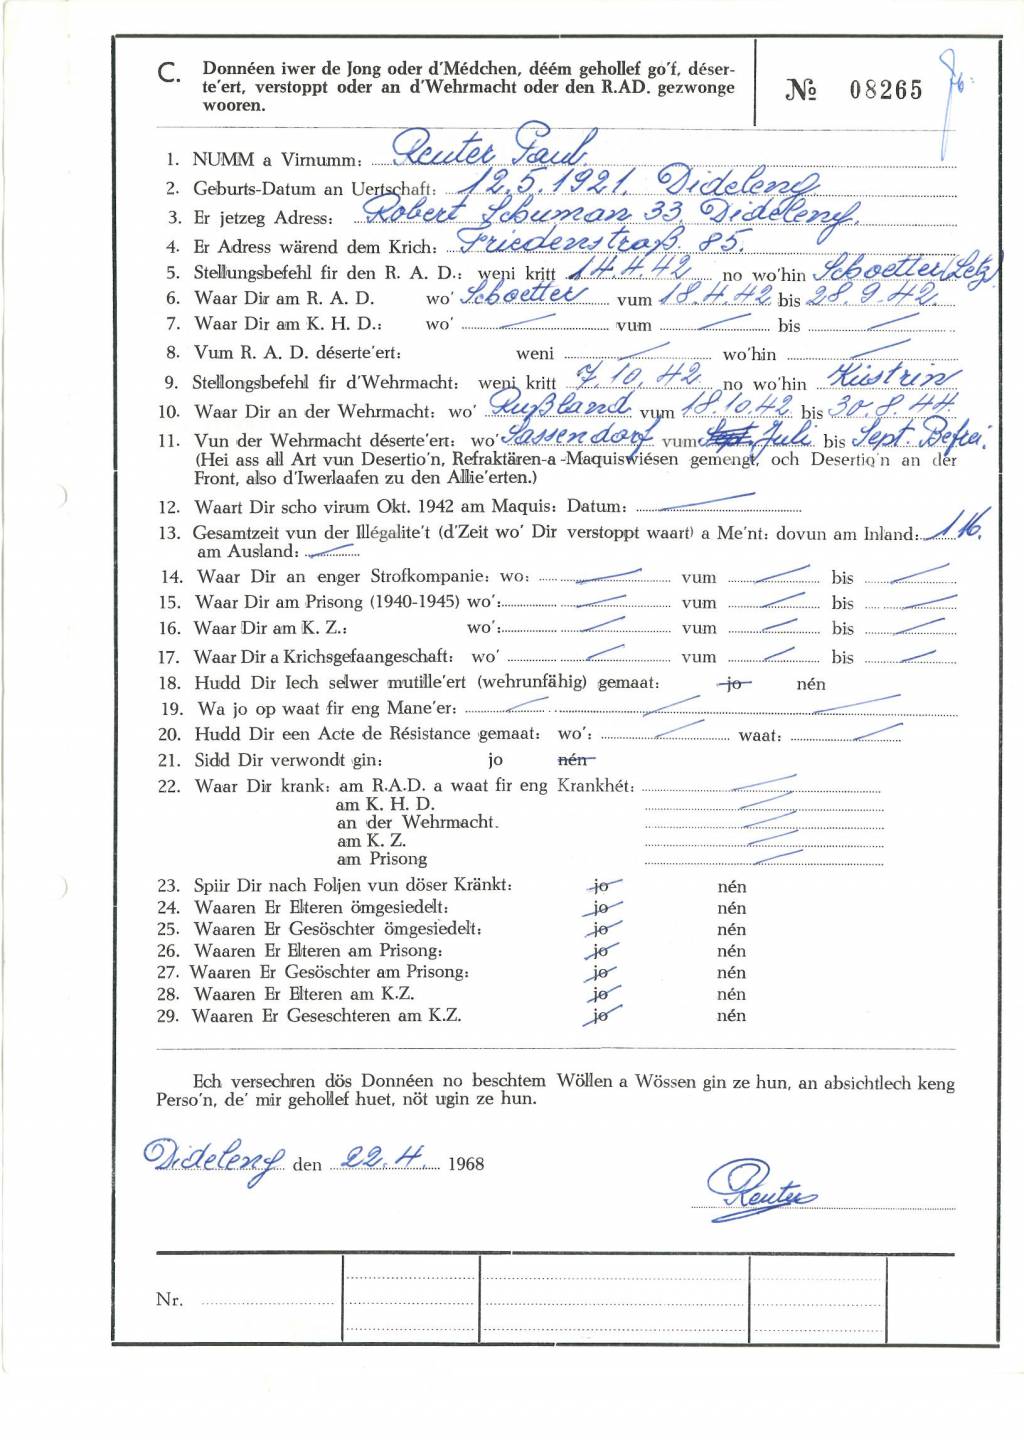 C. Donnéen iwer de Jong oder d'Médchen, déém gehollef go'f, déser-
te'ert, verstoppt oder an d'Wehrmacht oder den R.AD. gezwonge
wooren.
№ 08265
1. NUMM a Virnumm: Reuter Paul.
2. Geburts-Datum an Uertschaft: 12.5.1921. Dideleng
3. Er jetzeg Adress: Robert Schuman 33 Dideleng.
4. Er Adress wärend dem Krich: Friedenstraß. 85.
5. Stellungsbefehl fir den R. A. D.: weni kritt 14.4.42 no wo'hin Schoetter/Letz.
6. Waar Dir am R. A. D. wo' Schoetter vum 18.4.42 bis 28.9.42.
7. Waar Dir am K. H. D.: wo' — vum — bis —
8. Vum R. A. D. déserte'ert: weni — wo'hin —
9. Stellongsbefehl fir d'Wehrmacht: weni kritt 7.10.42 no wo'hin Küstrin
10. Waar Dir an der Wehrmacht: wo' Rußland vum 18.10.42 bis 30.8.44.
11. Vun der Wehrmacht déserte'ert: wo' Sassendorf vum Sept. Juli bis Sept. Befrei.
(Hei ass all Art vun Desertio'n, Refraktären-a -Maquiswiésen gemengt, och Desertio'n an der
Front, also d'Iwerlaafen zu den Allie'erten.)
12. Waart Dir scho virum Okt. 1942 am Maquis: Datum: —
13. Gesamtzeit vun der Illégalite't (d'Zeit wo' Dir verstoppt waart) a Me'nt: dovun am Inland:
am Ausland: —
14. Waar Dir an enger Strofkompanie: wo: — vum — bis —
15. Waar Dir am Prisong (1940-1945) wo': — vum — bis —
16. Waar Dir am K. Z.: wo': — vum — bis —
17. Waar Dir a Krichsgefaangeschaft: wo' — vum — bis —
18. Hudd Dir Iech selwer mutille'ert (wehrunfähig) gemaat: jo nén
19. Wa jo op waat fir eng Mane'er: — — —
20. Hudd Dir een Acte de Résistance gemaat: wo': — waat: —
21. Sidd Dir verwondt gin: jo nén
22. Waar Dir krank: am R.A.D. a waat fir eng Krankhét: —
am K. H. D. —
an der Wehrmacht. —
am K. Z. —
am Prisong —
23. Spiir Dir nach Foljen vun döser Kränkt: jo nén
24. Waaren Er Elteren ömgesiedelt: jo nén
25. Waaren Er Gesöschter ömgesiedelt: jo nén
26. Waaren Er Elteren am Prisong: jo nén
27. Waaren Er Gesöschter am Prisong: jo nén
28. Waaren Er Elteren am K.Z. jo nén
29. Waaren Er Geseschteren am K.Z. jo nén
Ech versechren dös Donnéen no beschtem Wöllen a Wössen gin ze hun, an absichtlech keng
Perso'n, de' mir gehollef huet, nöt ugin ze hun.
Dideleng den 22.4. 1968
Reuter
Nr.